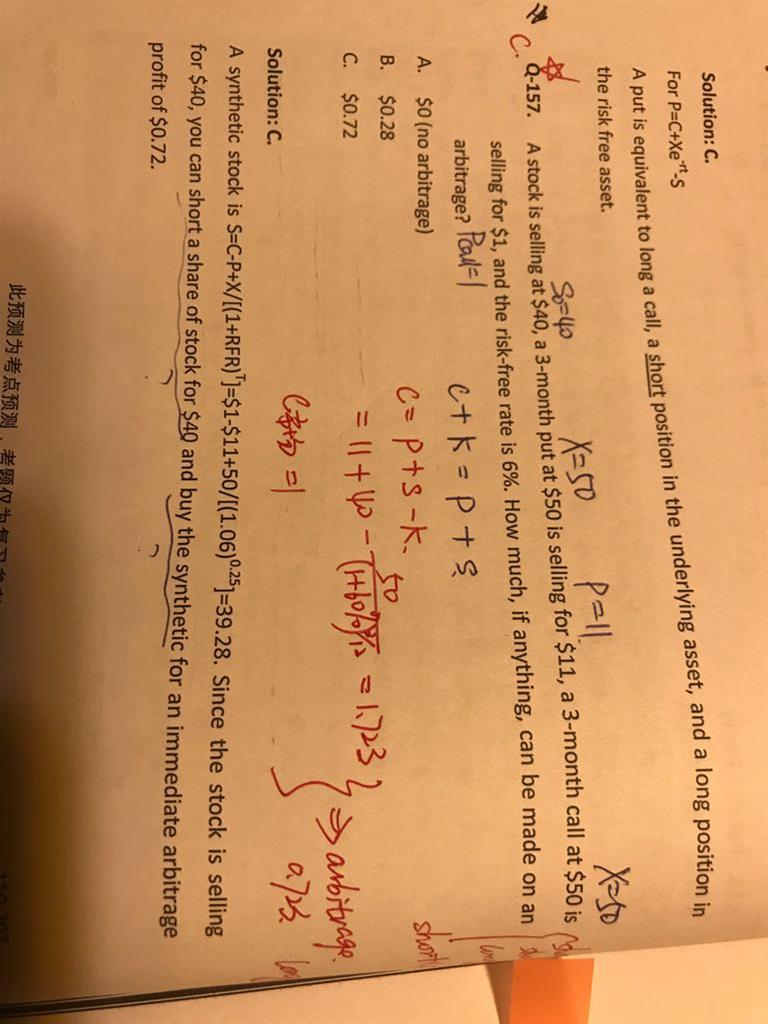 Solution: C.
For P=C+Xe^-rt-S
A put is equivalent to long a call, a short position in the underlying asset, and a long position in
the risk free asset.
S₀=40 X=50 P=11 X=50
C. Q-157. A stock is selling at $40, a 3-month put at $50 is selling for $11, a 3-month call at $50 is
selling for $1, and the risk-free rate is 6%. How much, if anything, can be made on an
arbitrage? Pcall=1
C+K=P+S
A. $0 (no arbitrage)
short
B. $0.28
C=P+S-K
C. $0.72
=11+40-50/(1+6%)^3/12 =1.723
⇒arbitrage
=1
0.723
Solution: C.
A synthetic stock is S=C-P+X/[(1+RFR)^T]=$1-$11+50/[(1.06)^0.25]=39.28. Since the stock is selling
for $40, you can short a share of stock for $40 and buy the synthetic for an immediate arbitrage
profit of $0.72.
此预测为考点预测，考题仅为复习